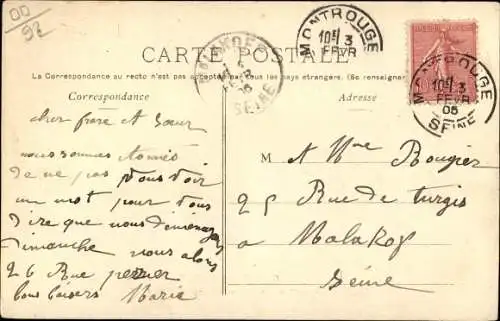 OD
92
CARTE POSTALE
MONTROUGE
10E/ 3
FEVR
MALAKOFF
SEINE
MONTROUGE
10E/ 3
FEVR
05
SEINE
La Correspondance au recto n'est pas acceptée par tous les pays étrangers. (Se renseigner
Correspondance
Adresse
cher frere et Sœur
nous sommes etonnés
de ne pas vous voir
un mot pour vous
dire que nous déménageons
dimanche nous alons
26 Rue
bons baisers Maria
M et Mme Bougier
25 Rue de turgis
a Malakof
Seine